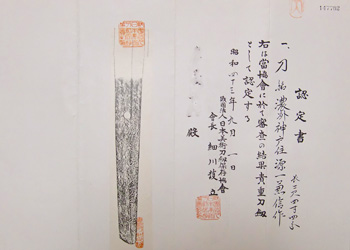 認定書
一、刀 銘 濃州神戸住源一兼信作
長二尺四寸四分
右は當協會に於て審査の結果貴重刀剣
として認定する
昭和四十三年九月一日
財団法人日本美術刀剣保存協會
會長 細川護立
殿
147702